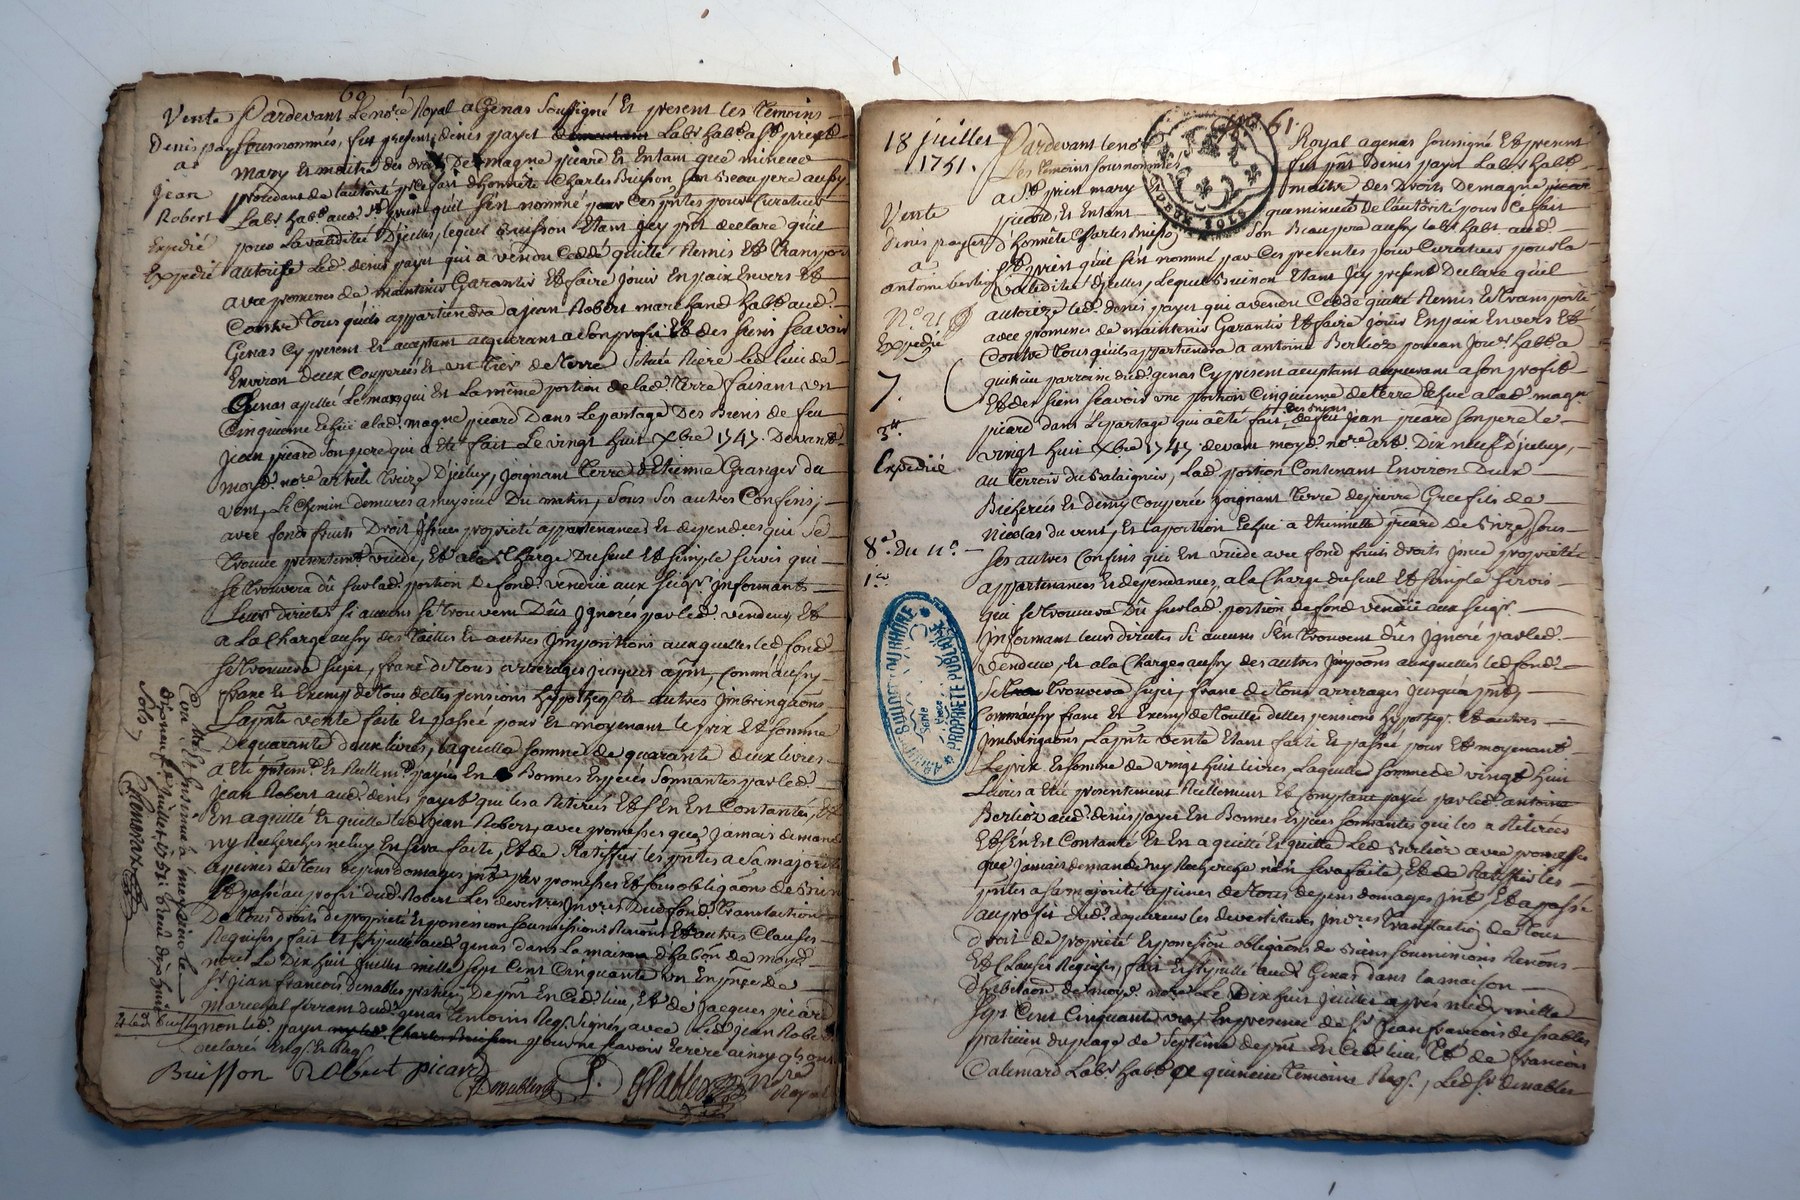 60
Vente
Denis payet
a
jean
Robert
Expedié
Expedié
Pardevant Le no.re Royal a Genas Soussigné Et present les Temoins
sousnommés, fut present denis payet Lab.r hab.t a S.t priest
mary Et maitre des droits De magne picard Et Entant que mineur
procedant de l'autorité pour ce fait d'honnête Charles Buisson son Beaupere aussy
Lab.r hab.t aud. S.t priest quil s'est nommé pour Ces pntes pour Curateur
pour La validité D'jcelles, lequel Buisson Etant jcy pnt declare quil
autorise Led. denis payet qui a vendu Cedé quitté Remis Et Transporté
avec promesses de maintenir Garantir Et faire joüir En paix Envers Et
Contre Tous quils appartiendra a jean Robert marchand hab.t aud.
Genas Cy present Et acceptant acquerant a son profit Et des siens scavoir
Environ deux Couperées Et un Tier de Terre Située Riere Led. lieu de
Genas apellée Le mas qui Est La même portion de lad. Terre faisant un
Cinquieme Echüe a lad. magne picard Dans Le partage Des Biens de feu
jean picard son pere qui a eté fait Le vingt huit Xbre 1747. Devant
moyd. no.re article Treize D'jceluy, joignant Terre d'Etienne Granger du
vent, Le Chemin demures a meyzieu Du matin, Sous Ses autres Confins,
avec fond fruits Droit jssues proprieté appartenances Et dependces qui Se
Trouve presentemt vuide, Et a la Charge Du Seul Et Simple Servis qui
Se Trouvera dû sur lad. portion De fond vendüe aux Seig.rs jnformant
Leurs directes Si aucuns Se Trouvent Dûs jgnores par led. vendeur Et
a La Charge aussy des Tailles Et autres jmpositions auxquelles led. fond
Se Trouvera Sujet, franc de Tous arrerages jusques a pnt, Comm'aussy
franc Et Exempt de Tous dettes pensions hypotheq.s Et autres jmbringaõns
La pnte vente faite Et passée pour Et moyenant le prix Et Somme
De quarante deux livres, laquelle Somme de quarante deux livres
a Eté pntem.t Et Reellem.t payées En Bonnes Especes Sonnantes par led.
jean Robert aud. denis payet qui les a Retirées Et S'En Est Contenté, Et
En a quitté Et quitte led. jean Robert, avec promesses que jamais demande
ny Recherches ne luy En Sera faite, Et de Ratiffier les pntes a Sa majorité
a peines de Tous depens domages
Et passé au profit dud. Robert Les devestitures
De Tous droits de proprieté Et possession Soumissions Renonc.s Et autres Clauses
Requises, fait Et Stipullé aud. genas dans la maison d'habõn de moyd.
no.re Le Dix huit juillet mille Sept Cent Cinquante un En pnce de
S.r jean francois denables praticien Dept En Ced. lieu, Et de jacques picard
marechal ferrant dud. genas Temoins Req.s Signés avec led. jean Robert
Et led. Buisson
non led. payet pour ne scavoir Ecrire ainsy qu'il a
declaré Enq.s Et Req.s
Buisson Robert picard
Denables
no.re Royal
Con.llé Et jnsinué à meyzieu le
dixneuf juillet 1751. Receu dix huit
Sols
61.
18 juillet
1751.
Vente
denis payet
a
antoine berlioz
N.o 21
Expedié
7.
3.tt
Expedié
8.e du n.o
1.er
DEUX SOLS
Pardevant Le no.re Royal a genas Sousigné Et present
Les Temoins Sousnommés, fut pnt denis payet Lab.r hab.t
a S.t priest mary maitre des Droits De magne picard
picard, Et Entant que mineur de l'autorité pour Ce fait
d'honnête Charles Buisson Son Beaupere aussy lab.r hab.t aud.
S.t priest quil s'est nommé par Ces presentes pour Curateur pour la
validité d'jcelles, Lequel Buisson Etant jcy present Declare quil
autorize led. denis payet qui a vendu Cedé quitté Remis Et Transporté
avec promesses de maintenir Garantir Et faire joüir En paix Envers Et
Contre Tous quils appartiendra a antoine Berlioz jour.r hab.t a
quincieu parroisse dud. genas Cy present acceptant acquerant a Son profit
Et des Siens Scavoir une portion Cinquieme de Terre Echüe a lad. magne
picard dans L'Epartage qui a eté fait des biens de feu jean picard Son pere le
vingt huit Xbre 1747. devant moyd. no.re art. Dix neuf d'jceluy,
au Terroir du Balaignier, Lad. portion Contenant Environ Deux
Bicherées Et demy Couperée joignant Terre de pierre Gree fils de
Nicolas du vent, Et la portion Echüe a Ettiennette picard de Bize, Sous
Ses autres Confins qui Est vuide avec fond fruits droits jssue proprieté
appartenances Et dependances, a la Charge du Seul Et Simple Servis
qui Se Trouvera Dû Sur lad. portion de fond vendüe aux Seig.rs
jnformant leurs directes Si aucuns S'En Trouvent dûs jgnoré par led.
vendeur, Et a la Charge aussy des autres jmpõons auxquelles led. fond
Se Trouvera Sujet, franc de Tous arrerages jusqu'a pnt,
Comm'aussy franc Et Exempt de Toutes dettes pensions hypotheq. Et autres
jmbringaõns La pnte vente Etant faite Et passée pour Et moyenant
Le prix Et Somme de vingt huit livres Laquelle Somme de vingt huit
Livres a Eté presentement Reellement Et Comptant payée par led. antoine
Berlioz aud. denis payet En Bonnes Especes Sonnantes qui les a Retirées
Et S'En Est Contenté Et En a quitté Et quitte Led. Berlioz avec promesses
que jamais demande ny Recherche n'En Sera faite, Et de Ratiffier les
pntes a Sa majorité a peines de Tous depens domages jnt.s Et a passé
au profit dud. acquereur les devestitures jnv.res Translation de Tous
droit de proprieté Et possession obligaõns de Biens Soumissions Renons.
Et Clauses Requises, fait Et Stipullé aud. Genas dans la maison
d'habitaõn de moyd. no.re Le Dix huit juillet après midy mille
Sept Cent Cinquante un En presence de S.r jean francois denables
praticien du de Septeme Dept En Ced. lieu Et de francois
Calemard Lab.r hab.t a quincieu Temoins Req.s, Led. S.r denables
ARCHIVES DU DÉPT DU RHÔNE
PROPRIÉTÉ PUBLIQUE